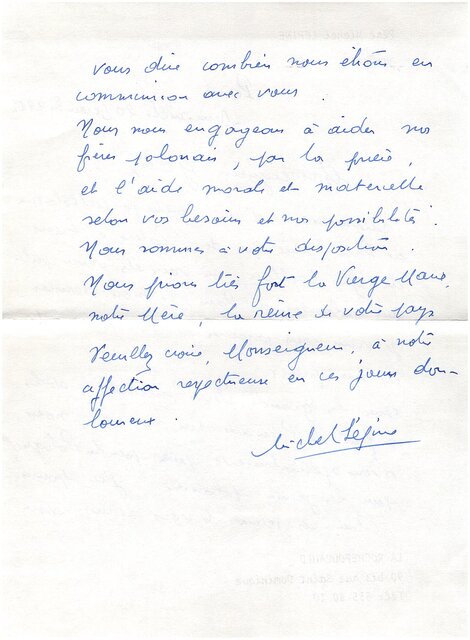 vous dire combien nous étions en
communion avec vous.
Nous nous engageons à aider nos
frères polonais, par la prière,
et l'aide morale et matérielle
selon vos besoins et nos possibilités.
Nous sommes à votre disposition.
Nous prions très fort la Vierge Marie,
notre Mère, la reine de votre pays
Veuillez croire, Monseigneur, à notre
affection respectueuse en ces jours dou-
loureux.
Michel Lépine